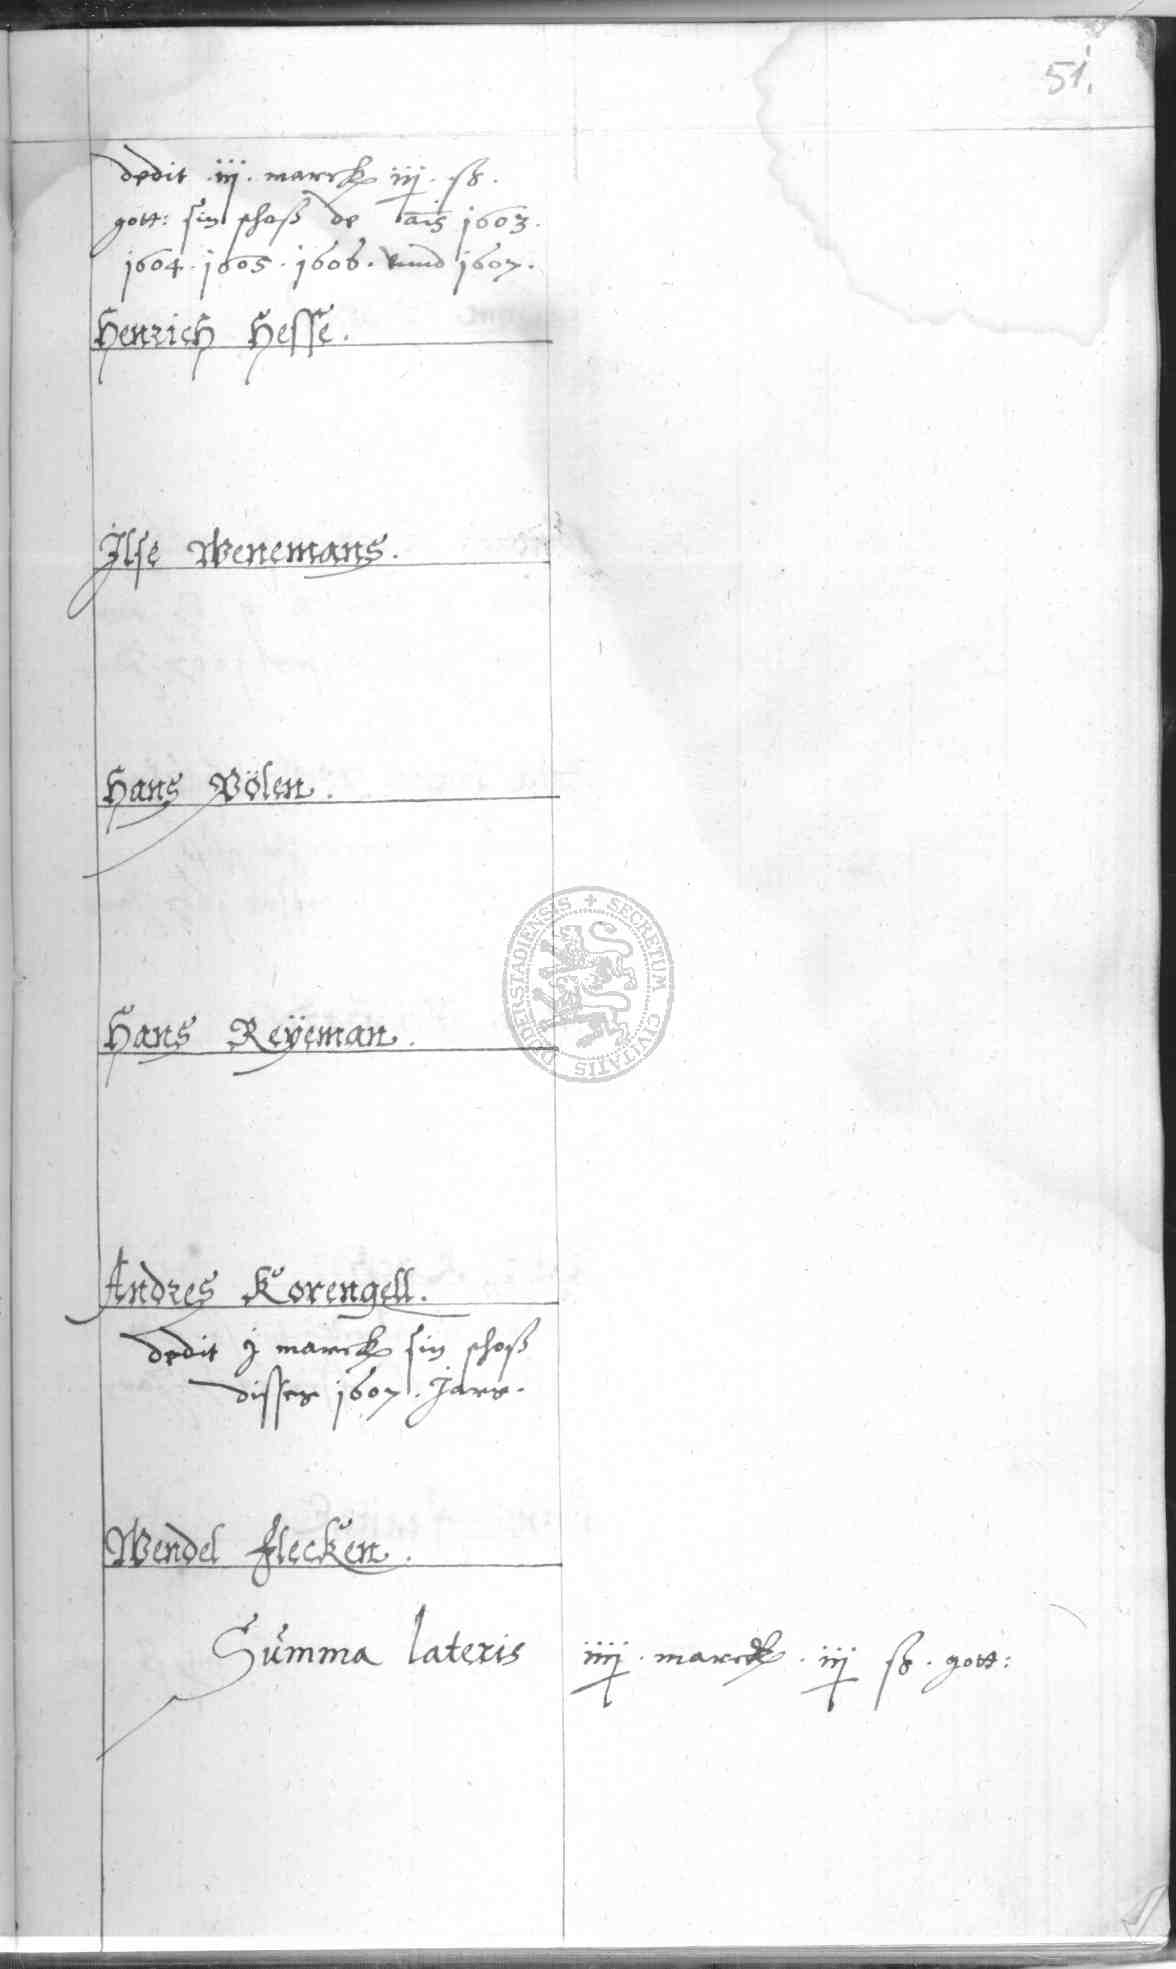 51.
dedit .iij. marck iij. ß.
gott: sin schoß de a̅is 1603.
1604. 1605. 1606. vnnd 1607.
Henrich Hesse.
Ilse Wenemans.
Hans Völen.
Hans Reÿeman.
Andres Korengell.
dedit j marck sin schoß
disses 1607. Jars.
Wendel Flecken.
Summa lateris iiij. marck. iij ß. gott:
SECRETUM CIVITATIS DUDERSTADIENSIS